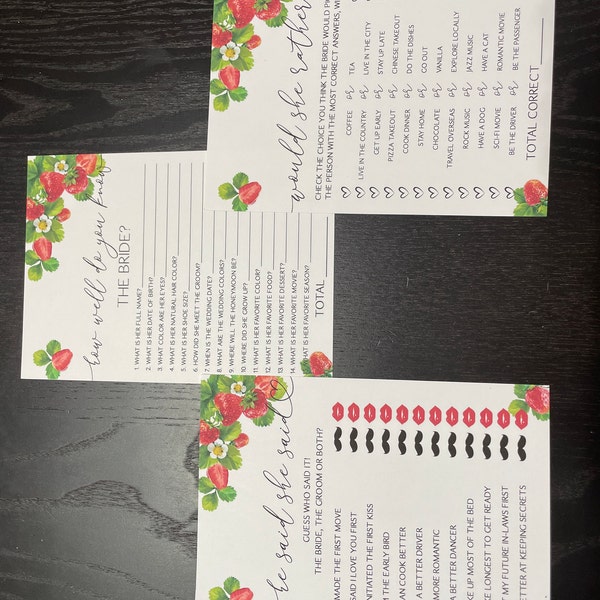 would she rather
CHECK THE CHOICE YOU THINK THE BRIDE WOULD
THE PERSON WITH THE MOST CORRECT ANSWERS,
COFFEE or TEA
LIVE IN THE COUNTRY or LIVE IN THE CITY
GET UP EARLY or STAY UP LATE
PIZZA TAKEOUT or CHINESE TAKEOUT
COOK DINNER or DO THE DISHES
STAY HOME or GO OUT
CHOCOLATE or VANILLA
TRAVEL OVERSEAS or EXPLORE LOCALLY
ROCK MUSIC or JAZZ MUSIC
HAVE A DOG or HAVE A CAT
SCI-FI MOVIE or ROMANTIC MOVIE
BE THE DRIVER or BE THE PASSENGER
TOTAL CORRECT
how well do you know
THE BRIDE?
1. WHAT IS HER FULL NAME?
2. WHAT IS HER DATE OF BIRTH?
3. WHAT COLOR ARE HER EYES?
4. WHAT IS HER NATURAL HAIR COLOR?
5. WHAT IS HER SHOE SIZE?
6. HOW DID SHE MEET THE GROOM?
7. WHEN IS THE WEDDING DATE?
8. WHAT ARE THE WEDDING COLORS?
9. WHERE WILL THE HONEYMOON BE?
10. WHERE DID SHE GROW UP?
11. WHAT IS HER FAVORITE COLOR?
12. WHAT IS HER FAVORITE FOOD?
13. WHAT IS HER FAVORITE DESSERT?
14. WHAT IS HER FAVORITE MOVIE?
15. WHAT IS HER FAVORITE SEASON?
TOTAL
he said she said
GUESS WHO SAID IT!
THE BRIDE, THE GROOM OR BOTH?
MADE THE FIRST MOVE
SAID I LOVE YOU FIRST
INITIATED THE FIRST KISS
THE EARLY BIRD
AN COOK BETTER
A BETTER DRIVER
MORE ROMANTIC
A BETTER DANCER
UP MOST OF THE BED
LONGEST TO GET READY
MY FUTURE IN-LAWS FIRST
BETTER AT KEEPING SECRETS